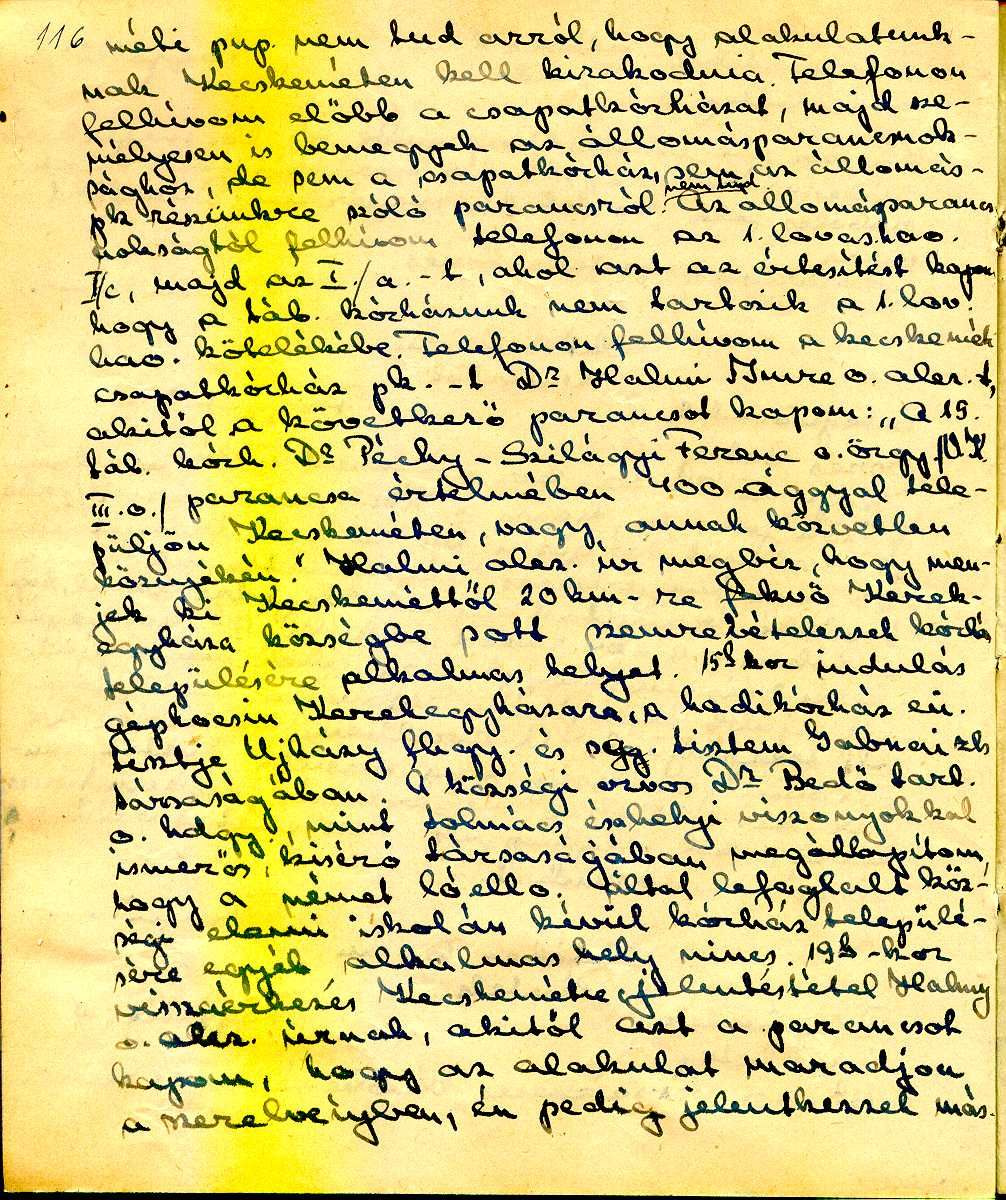 116 méti pug. nem tud arról, hogy alakulatunk-
nak Kecskeméten kell kirakodnia. Telefonon
felhívom előbb a csapatkórházat, majd sze-
mélyesen is bemegyek az állomásparancsnok-
sághoz, de sem a csapatkórház, sem az állomás-
nem tud.
pk részünkre szóló parancsról. Az állomásparancs
nokságtól felhívom telefonon az 1. lovas hao.
I/c, majd az I./a. -t, ahol azt az értesítést kapom
hogy a táb. kórházunk nem tartozik a 1. lov.
hao. kötelékébe. Telefonon felhívom a kecskeméti
csapatkórház pk. -t Dr Halmi Imre o. alez. -t,
akitől a következő parancsot kapom: „A 19.
táb. kórh. Dr Péchy-Szilágyi Ferenc o. őrgy.
III. o./ parancsa értelmében 400 ággyal tele-
püljön Kecskeméten, vagy annak közvetlen
közeljékén." Halmi alez. úr megbíz, hogy men-
jek ki Kecskeméttől 20 km-re fekvő Kerek-
egyháza községbe s ott szemrevételezzek kórház
településére alkalmas helyet. 15h kor indulás
gépkocsin Kerekegyházára, a hadikórház eü.
tisztje Ujházy fhgy. és sgg. tisztem Gabnai zls
társaságában. A községi orvos Dr Bedő tart.
o. hdgy., mint tolmács és a helyi viszonyokkal
ismerős, kisérő társaságában megállapítom,
hogy a német lóello. által lefoglalt köz-
ségi elemi iskolán kívül kórház települé-
sére egyéb alkalmas hely nincs. 19h-kor
visszaérkezés Kecskemétre, jelentéstétel Halmy
o. alez. úrnak, akitől azt a parancsot
kapom, hogy az alakulat maradjon
a szerelvényben, én pedig jelentkezzek más-